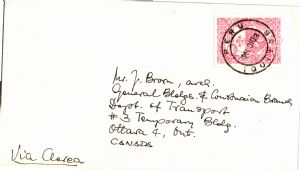 Mr. J. Brown, arch.
General Bldgs. & Construction Branch,
Dept. of Transport
# 3 Temporary Bldg.
Ottawa 4, Ont.
CANADA
Via Aerea